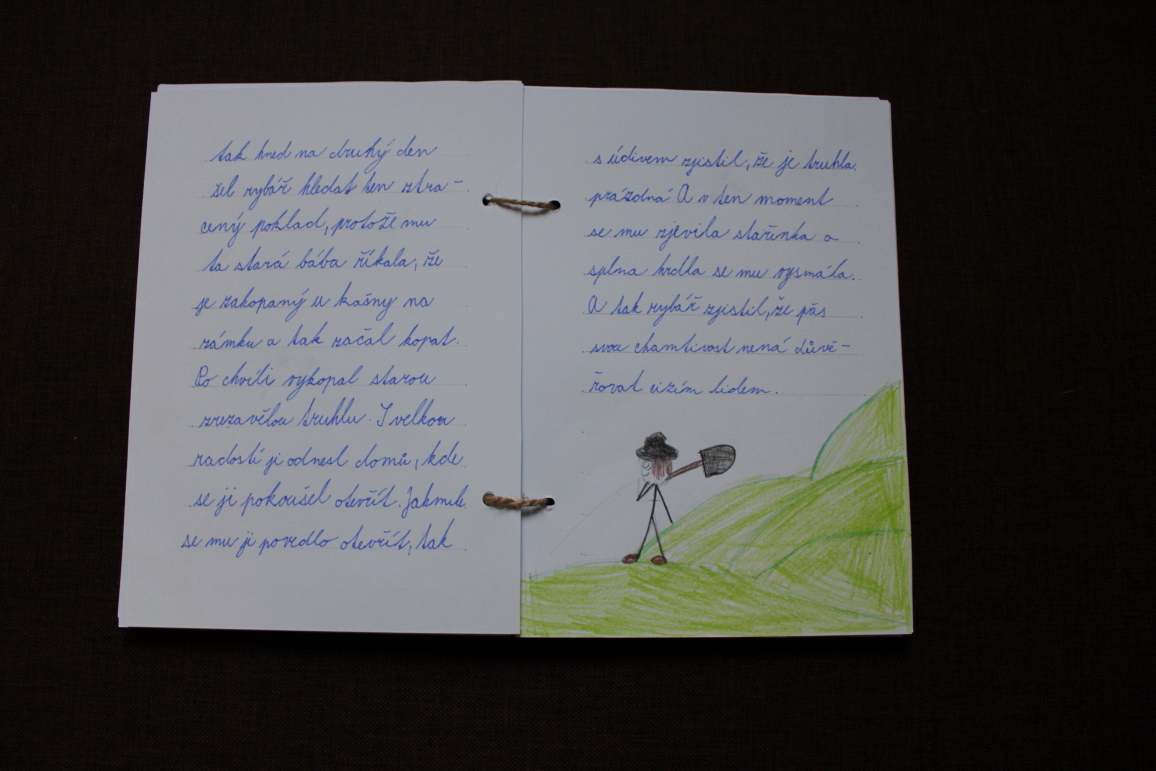 tak hned na druhý den
šel rybář hledat ten ztra-
cený poklad, protože mu
ta stará bába říkala, že
je zakopaný u kašny na
zámku a tak začal kopat.
Po chvíli vykopal starou
zrezavělou truhlu. S velkou
radostí ji odnesl domů, kde
se ji pokoušel otevřít. Jakmile
se mu ji povedlo otevřít, tak
s údivem zjistil, že je truhla
prázdná A v ten moment
se mu zjěvila stařinka a
splna hrdla se mu vysmála.
A tak rybář zjistil, že přes
svou chamtivost nemá důvě-
řovat cizím lidem.